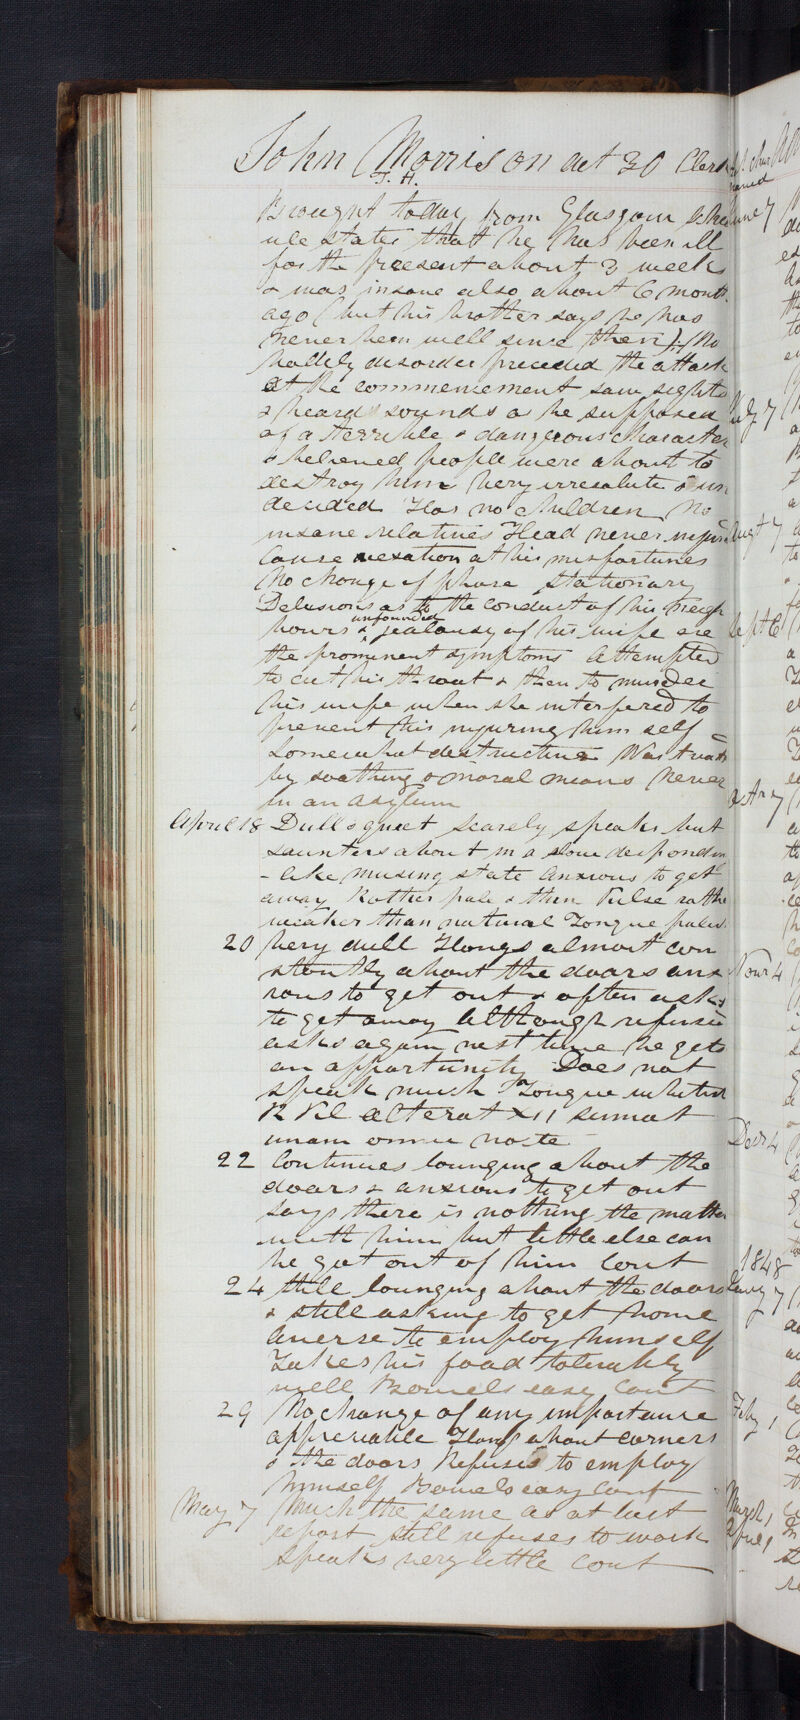 John Morrison aet 30 Clerk
J. H.
Brought today from Glasgow Sched
ule states that he has been ill
for the present about 3 weeks
& was insane also about 6 months
ago (but his brother says he has
never been well since then). No
bodily disorder preceded the attack
At the commencement saw sights
& heard sounds as he supposed
of a terrible & dangerous character
& believed people were about to
destroy him Very irresolute & un
decided Has no children No
insane relatives Head never injured
Cause vexation at his misfortunes
No change of phase Stationary
Delusions as to the conduct of his neigh
bours & unfounded jealousy of his wife are
the prominent symptoms Attempted
to cut his throat & then to murder
his wife when she interfered to
prevent his injuring him self
Somewhat destructive Was treated
by soathing & moral means Never
in an asylum
April 18 Dull & quiet Scarely speaks but
saunters about in a slow despondin
-like musing state Anxious to get
away Rather pale & thin Pulse rathe
weaker than natural Tongue pale
20 Very dull Hangs almost con
stantly about the doors anx
ious to get out & often asks
to get away Although refused
asks again next time he gets
an opportunity Does not
speak much Tongue whitish
R Pil alterat XII sumat
unam omni nocte
22 Continues lounging about the
doors & anxious to get out
Says there is nothing the matter
with him but little else can
be got out of him Cont
24 Still lounging about the doors
& still asking to get home
Averse to employ himself
Takes his food tolerably
well Bowels easy Cont
29 No change of any importance
appreciable Hangs about corners
& the doors Refuses to employ
himself Bowels easy Cont
May 7 Much the same as at last
report Still refuses to work
Speaks very little Cont
June 7
July 7
Augt 7
Sept 6
Novr 4
Decr 4
1848
Jany 7
Feby 1
March 1
April 1